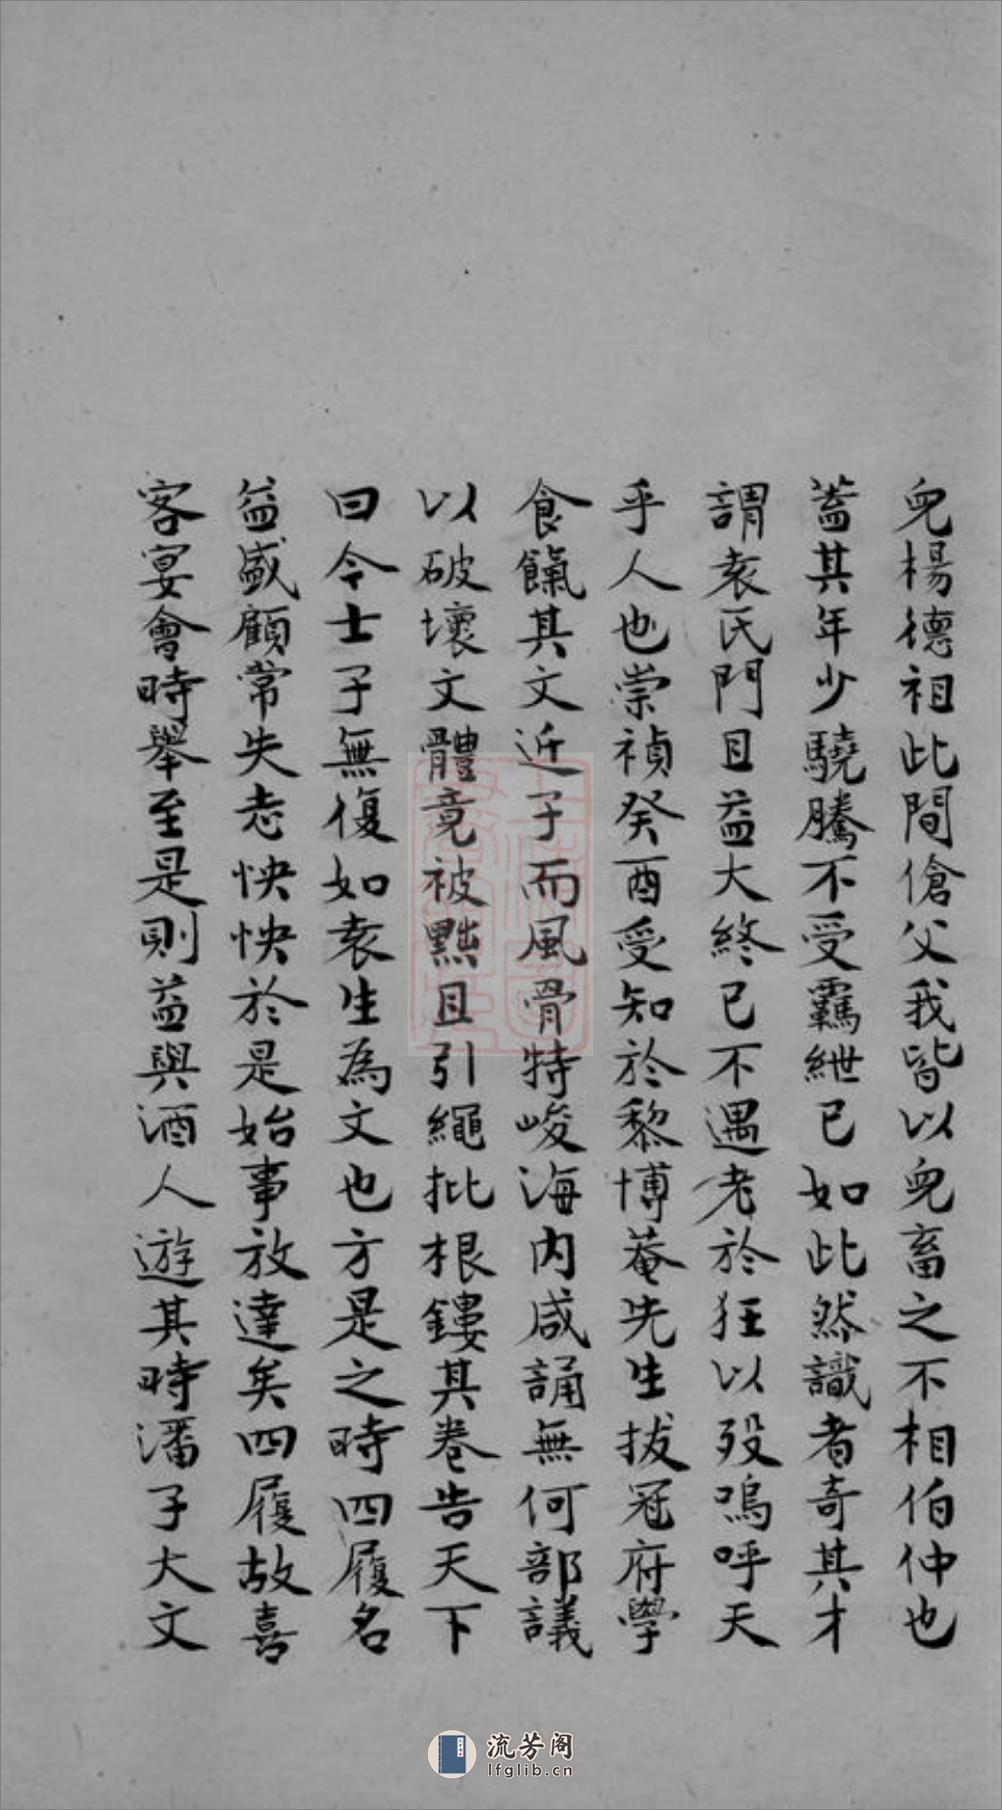 兒楊德祖此間傖父我皆以兒畜之不相伯仲也
蓋其年少驍騰不受羈紲已如此然識者奇其才
謂袁氏門且益大終已不遇老於狂以歿嗚呼天
乎人也崇禎癸酉受知於黎博菴先生拔冠府學
食餼其文近子而風骨特峻海內咸誦無何部議
以破壞文體竟被黜且引繩批根鏤其卷告天下
曰令士子無復如袁生為文也方是之時四履名
益盛顧常失志怏怏於是始事放達矣四履故喜
客宴會時舉至是則益與酒人遊其時潘子大文
流芳阁
lfglib.cn